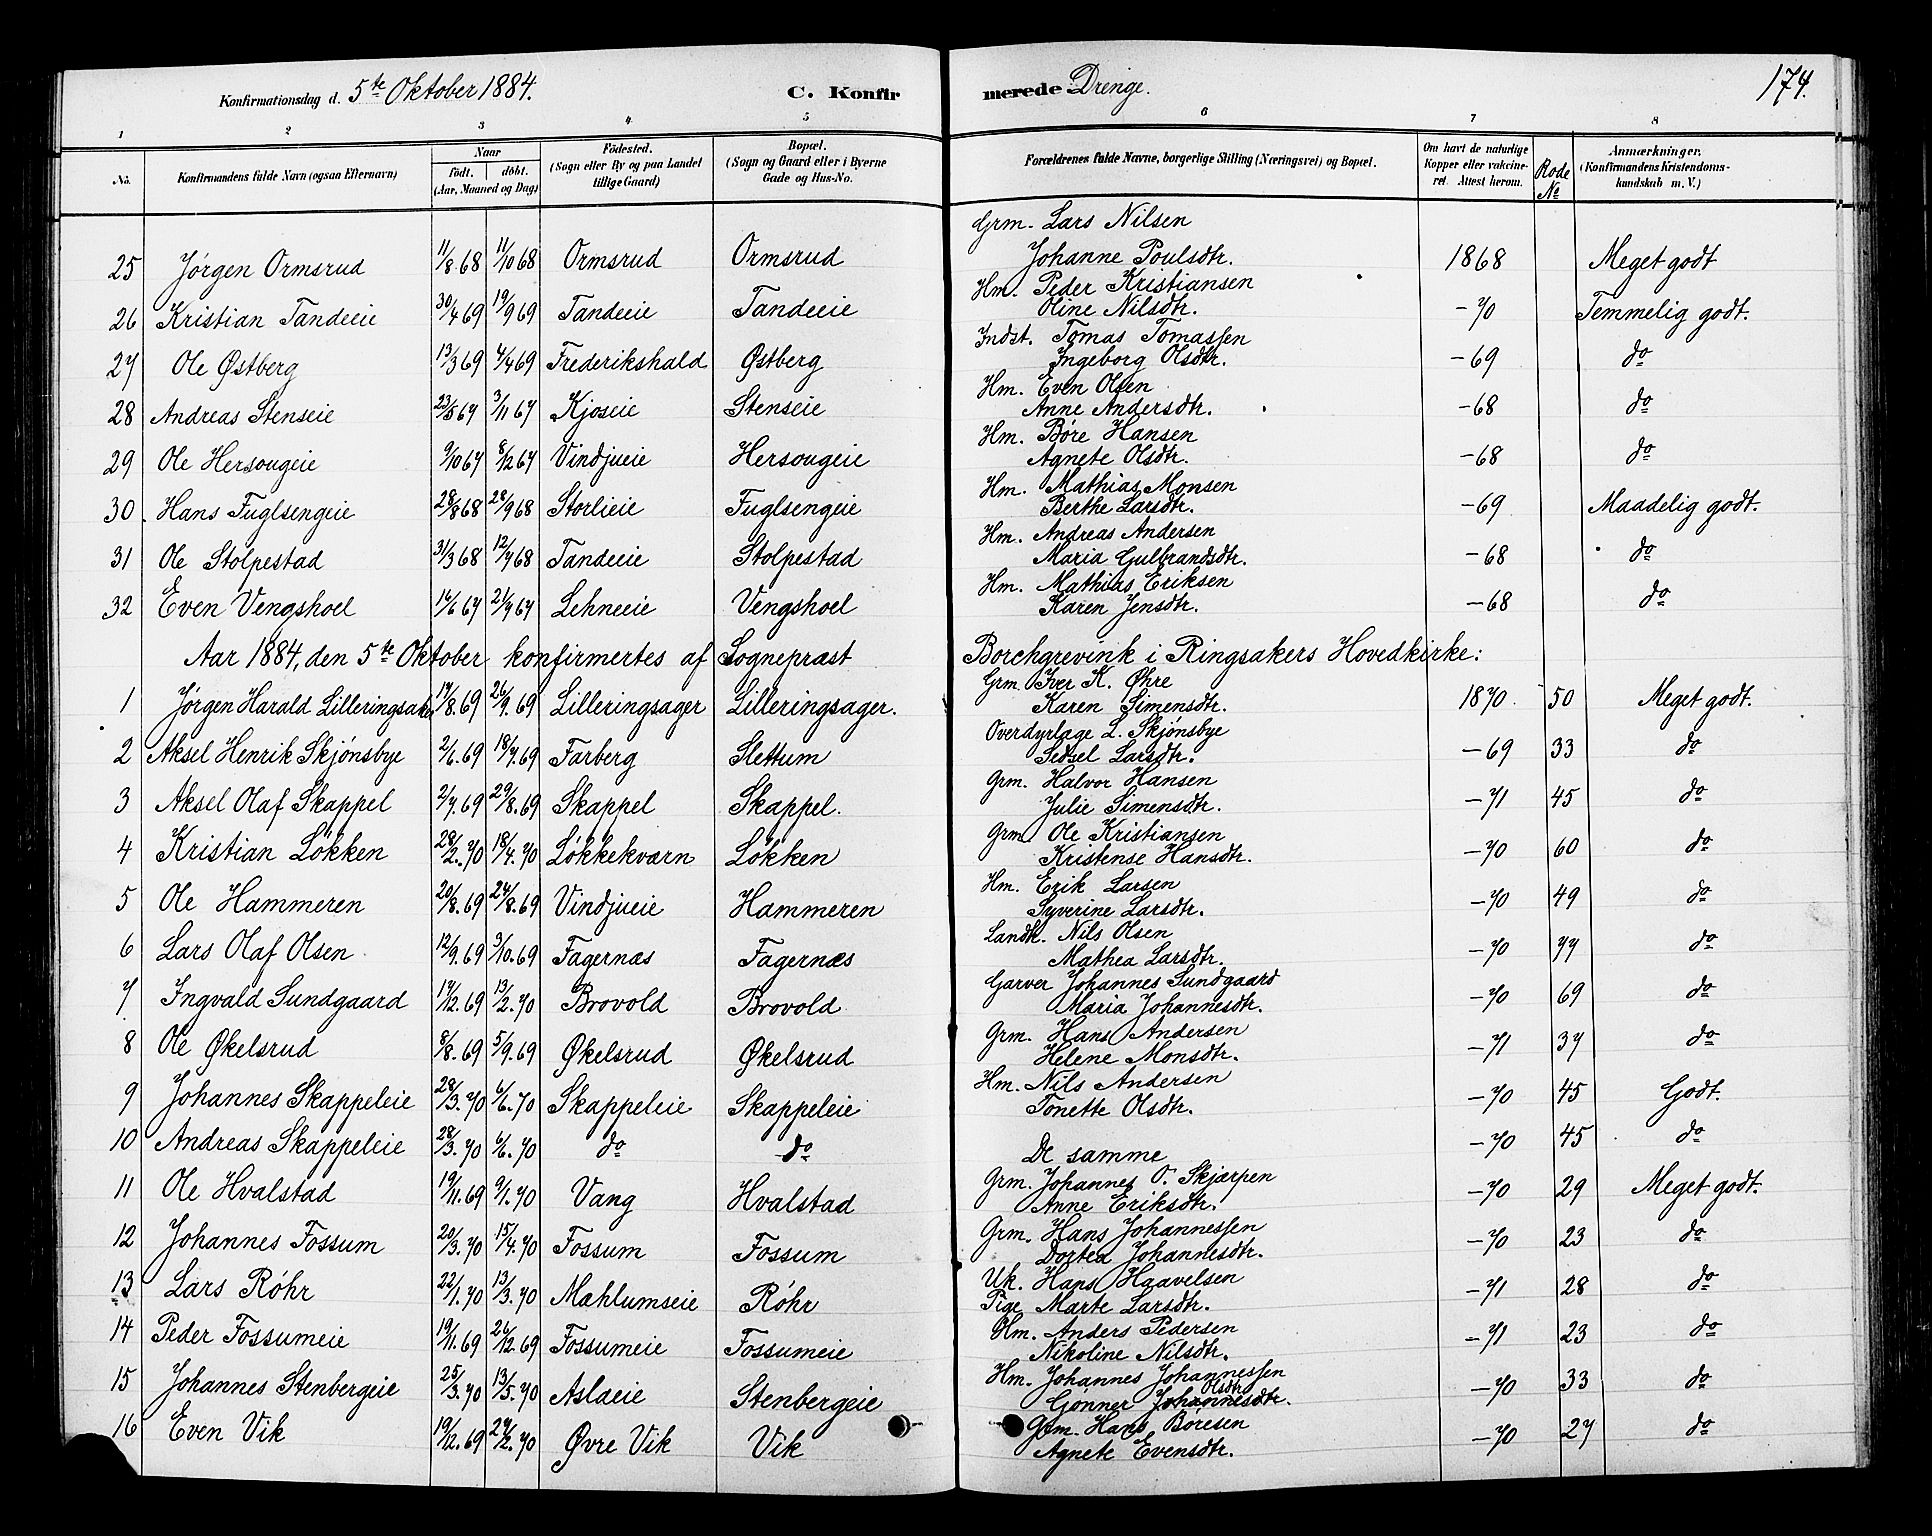 Konfirmationsdag d. 5te Oktober 1884. C. Konfirmerede Drenge. 174.
1 2 3 4 5 6 7 8
No. Konfirmandens fulde Navn (ogsaa Efternavn) Naar født. døbt. (Aar, Maaned og Dag) Fødested. (Sogn eller By og paa Landet tillige Gaard) Bopæl. (Sogn og Gaard eller i Byerne Gade og Hus-No. Forældrenes fulde Navne, borgerlige Stilling (Næringsvei) og Bopæl. Om havt de naturlige Kopper eller vakcineret. Attest herom. Rode No Anmærkninger, (Konfirmandens Kristendomskundskab m. V.)
Grm. Lars Nilsen
25 Jørgen Ormsrud 11/8 68 11/10 68 Ormsrud Ormsrud Johanne Poulsdtr. 1868 Meget godt
Hm. Peder Kristiansen
26 Kristian Tandeeie 30/4 69 19/9 69 Tandeeie Tandeeie Oline Nilsdtr. -70 Temmelig godt.
Indst. Tomas Tomassen
27 Ole Østberg 13/3 69 4/4 69 Frederikshald Østberg Ingeborg Olsdtr. -69 do
Hm. Even Olsen
28 Andreas Stenseie 23/5 67 3/11 67 Kjoseie Stenseie Anne Andersdtr. -68 do
Hm. Børe Hansen
29 Ole Hersougeie 9/10 67 8/12 67 Vindjueie Hersougeie Agnete Olsdtr. -68 do
Hm. Mathias Monsen
30. Hans Fuglsengeie 28/8 68 28/9 68 Storlieie Fuglsengeie Berthe Larsdtr. -69 Maadelig godt.
Hm. Andreas Andersen
31 Ole Stolpestad 31/3 68 12/7 68 Tandeeie Stolpestad Maria Gulbrandsdtr. -68 do
Hm. Mathias Eriksen
32 Even Vengshoel 14/6 67 21/7 67 Lehneeie Vengshoel Karen Jensdtr. -68 do
Aar 1884, den 5te Oktober konfirmertes af Sogneprast Borchgrevink i Ringsakers Hovedkirke:
Grm. Iver K. Øhre
1 Jørgen Harald Lilleringsaker 17/8. 69 26/9. 69 Lilleringsager Lilleringsager. Karen Simensdtr. 1870 50 Meget godt.
Overdyrlæge L. Skjønsbye
2 Aksel Henrik Skjønsbye 2/6. 69 18/7. 69 Farberg Slettum Sidsel Larsdtr. -69 33 do
Grm. Halvor Hansen
3 Aksel Olaf Skappel 2/7. 69 29/8. 69 Skappel Skappel. Julie Simensdtr. -71 45 do
Grm. Ole Kristiansen
4 Kristian Løkken 28/2. 70 18/4. 70 Løkkekværn Løkken Kristense Hansdtr. -70 60 do
Hm. Erik Larsen
5 Ole Hammeren 20/8. 69 24/8. 69 Vindjueie Hammeren Syverine Larsdtr. -70 49 do
Landh. Nils Olsen
6 Lars Olaf Olsen 12/9. 69 3/10. 69 Fagernæs Fagernæs Mathea Larsdtr. -70 77 do
Garver Johannes Sundgaard
7 Ingvald Sundgaard 17/12. 69 13/2. 70 Brovold Brovold Maria Johannesdtr. -70 69 do
Grm. Hans Andersen
8 Ole Økelsrud 8/8. 69 5/9. 69 Økelsrud Økelsrud Helene Monsdtr. -71 37 do
Hm. Nils Andersen
9 Johannes Skappeleie 28/3. 70 6/6. 70 Skappeleie Skappeleie Tonette Olsdtr. -70 45 Godt.
10 Andreas Skappeleie 28/3. 70 6/6. 70 do do De samme -70 45 do
Grm. Johannes O. Skjærpen
11 Ole Hvalstad 19/11. 69 9/1. 70 Vang Hvalstad Anne Eriksdtr. -70 29 Meget godt.
Grm. Hans Johannessen
12 Johannes Fossum 20/3. 70 15/4. 70 Fossum Fossum Dortea Johannesdtr. -70 23 do
Uk. Hans Haavelsen
13 Lars Røhr 22/1. 70 13/3. 70 Mæhlumseie Røhr Pige Marte Larsdtr. -71 28 do
Hm. Anders Pedersen
14 Peder Fossumeie 19/11. 69 26/12. 69 Fossumeie Fossumeie Nikoline Nilsdtr. -71 23 do
Hm. Johannes Johannessen
Olsdtr
15 Johannes Stenbergeie 25/3. 70 13/5. 70 Aslaeie Stenbergeie Gønner Johannesdtr. -70 33 do
Grm. Hans Børesen
16 Even Vik 19/12. 69 27/2. 70 Øvre Vik Vik Agnete Evensdtr. -70 27 do